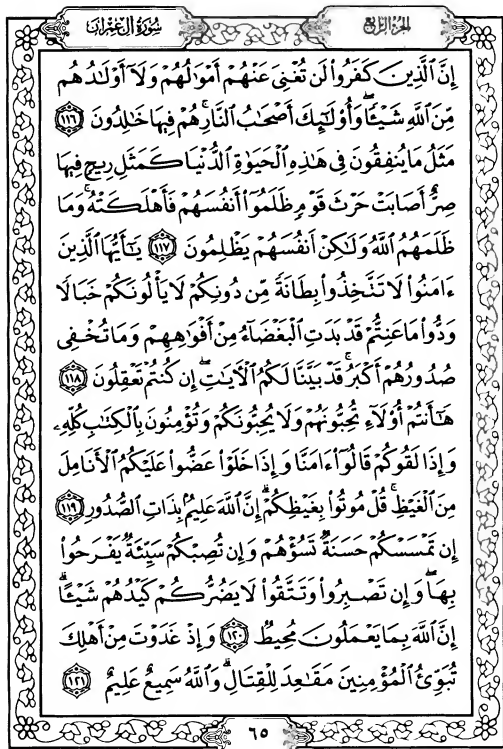 سُورَةُ آلِ عِمْرَان
الجُزْءُ الرَّابِعُ
إِنَّ ٱلَّذِينَ كَفَرُوا۟ لَن تُغْنِىَ عَنْهُمْ أَمْوَٰلُهُمْ وَلَآ أَوْلَٰدُهُم
مِّنَ ٱللَّهِ شَيْـًٔا ۖ وَأُو۟لَٰٓئِكَ أَصْحَٰبُ ٱلنَّارِ ۚ هُمْ فِيهَا خَٰلِدُونَ ١١٦
مَثَلُ مَا يُنفِقُونَ فِى هَٰذِهِ ٱلْحَيَوٰةِ ٱلدُّنْيَا كَمَثَلِ رِيحٍ فِيهَا
صِرٌّ أَصَابَتْ حَرْثَ قَوْمٍ ظَلَمُوٓا۟ أَنفُسَهُمْ فَأَهْلَكَتْهُ ۚ وَمَا
ظَلَمَهُمُ ٱللَّهُ وَلَٰكِنْ أَنفُسَهُمْ يَظْلِمُونَ ١١٧ يَٰٓأَيُّهَا ٱلَّذِينَ
ءَامَنُوا۟ لَا تَتَّخِذُوا۟ بِطَانَةً مِّن دُونِكُمْ لَا يَأْلُونَكُمْ خَبَالًا
وَدُّوا۟ مَا عَنِتُّمْ قَدْ بَدَتِ ٱلْبَغْضَآءُ مِنْ أَفْوَٰهِهِمْ وَمَا تُخْفِى
صُدُورُهُمْ أَكْبَرُ ۚ قَدْ بَيَّنَّا لَكُمُ ٱلْـَٔايَٰتِ ۖ إِن كُنتُمْ تَعْقِلُونَ ١١٨
هَٰٓأَنتُمْ أُو۟لَآءِ تُحِبُّونَهُمْ وَلَا يُحِبُّونَكُمْ وَتُؤْمِنُونَ بِٱلْكِتَٰبِ كُلِّهِۦ
وَإِذَا لَقُوكُمْ قَالُوٓا۟ ءَامَنَّا وَإِذَا خَلَوْا۟ عَضُّوا۟ عَلَيْكُمُ ٱلْأَنَامِلَ
مِنَ ٱلْغَيْظِ ۚ قُلْ مُوتُوا۟ بِغَيْظِكُمْ ۗ إِنَّ ٱللَّهَ عَلِيمٌۢ بِذَاتِ ٱلصُّدُورِ ١١٩
إِن تَمْسَسْكُمْ حَسَنَةٌ تَسُؤْهُمْ وَإِن تُصِبْكُمْ سَيِّئَةٌ يَفْرَحُوا۟
بِهَا ۖ وَإِن تَصْبِرُوا۟ وَتَتَّقُوا۟ لَا يَضُرُّكُمْ كَيْدُهُمْ شَيْـًٔا ۗ
إِنَّ ٱللَّهَ بِمَا يَعْمَلُونَ مُحِيطٌ ١٢٠ وَإِذْ غَدَوْتَ مِنْ أَهْلِكَ
تُبَوِّئُ ٱلْمُؤْمِنِينَ مَقَٰعِدَ لِلْقِتَالِ ۗ وَٱللَّهُ سَمِيعٌ عَلِيمٌ ١٢١
٦٥